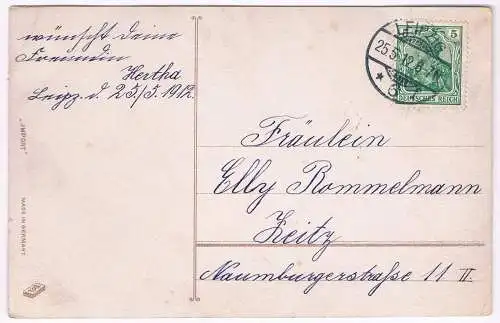 wünscht deine
Freundin
Hertha
Leipz. d. 25/5. 1912.
"IMPORT"
MADE IN GERMANY
LEIPZIG
25.5.12.
* 
5
DEUTSCHES REICH
Fräulein
Elly Rommelmann
Zeitz
Naumburgerstraße 11 II.